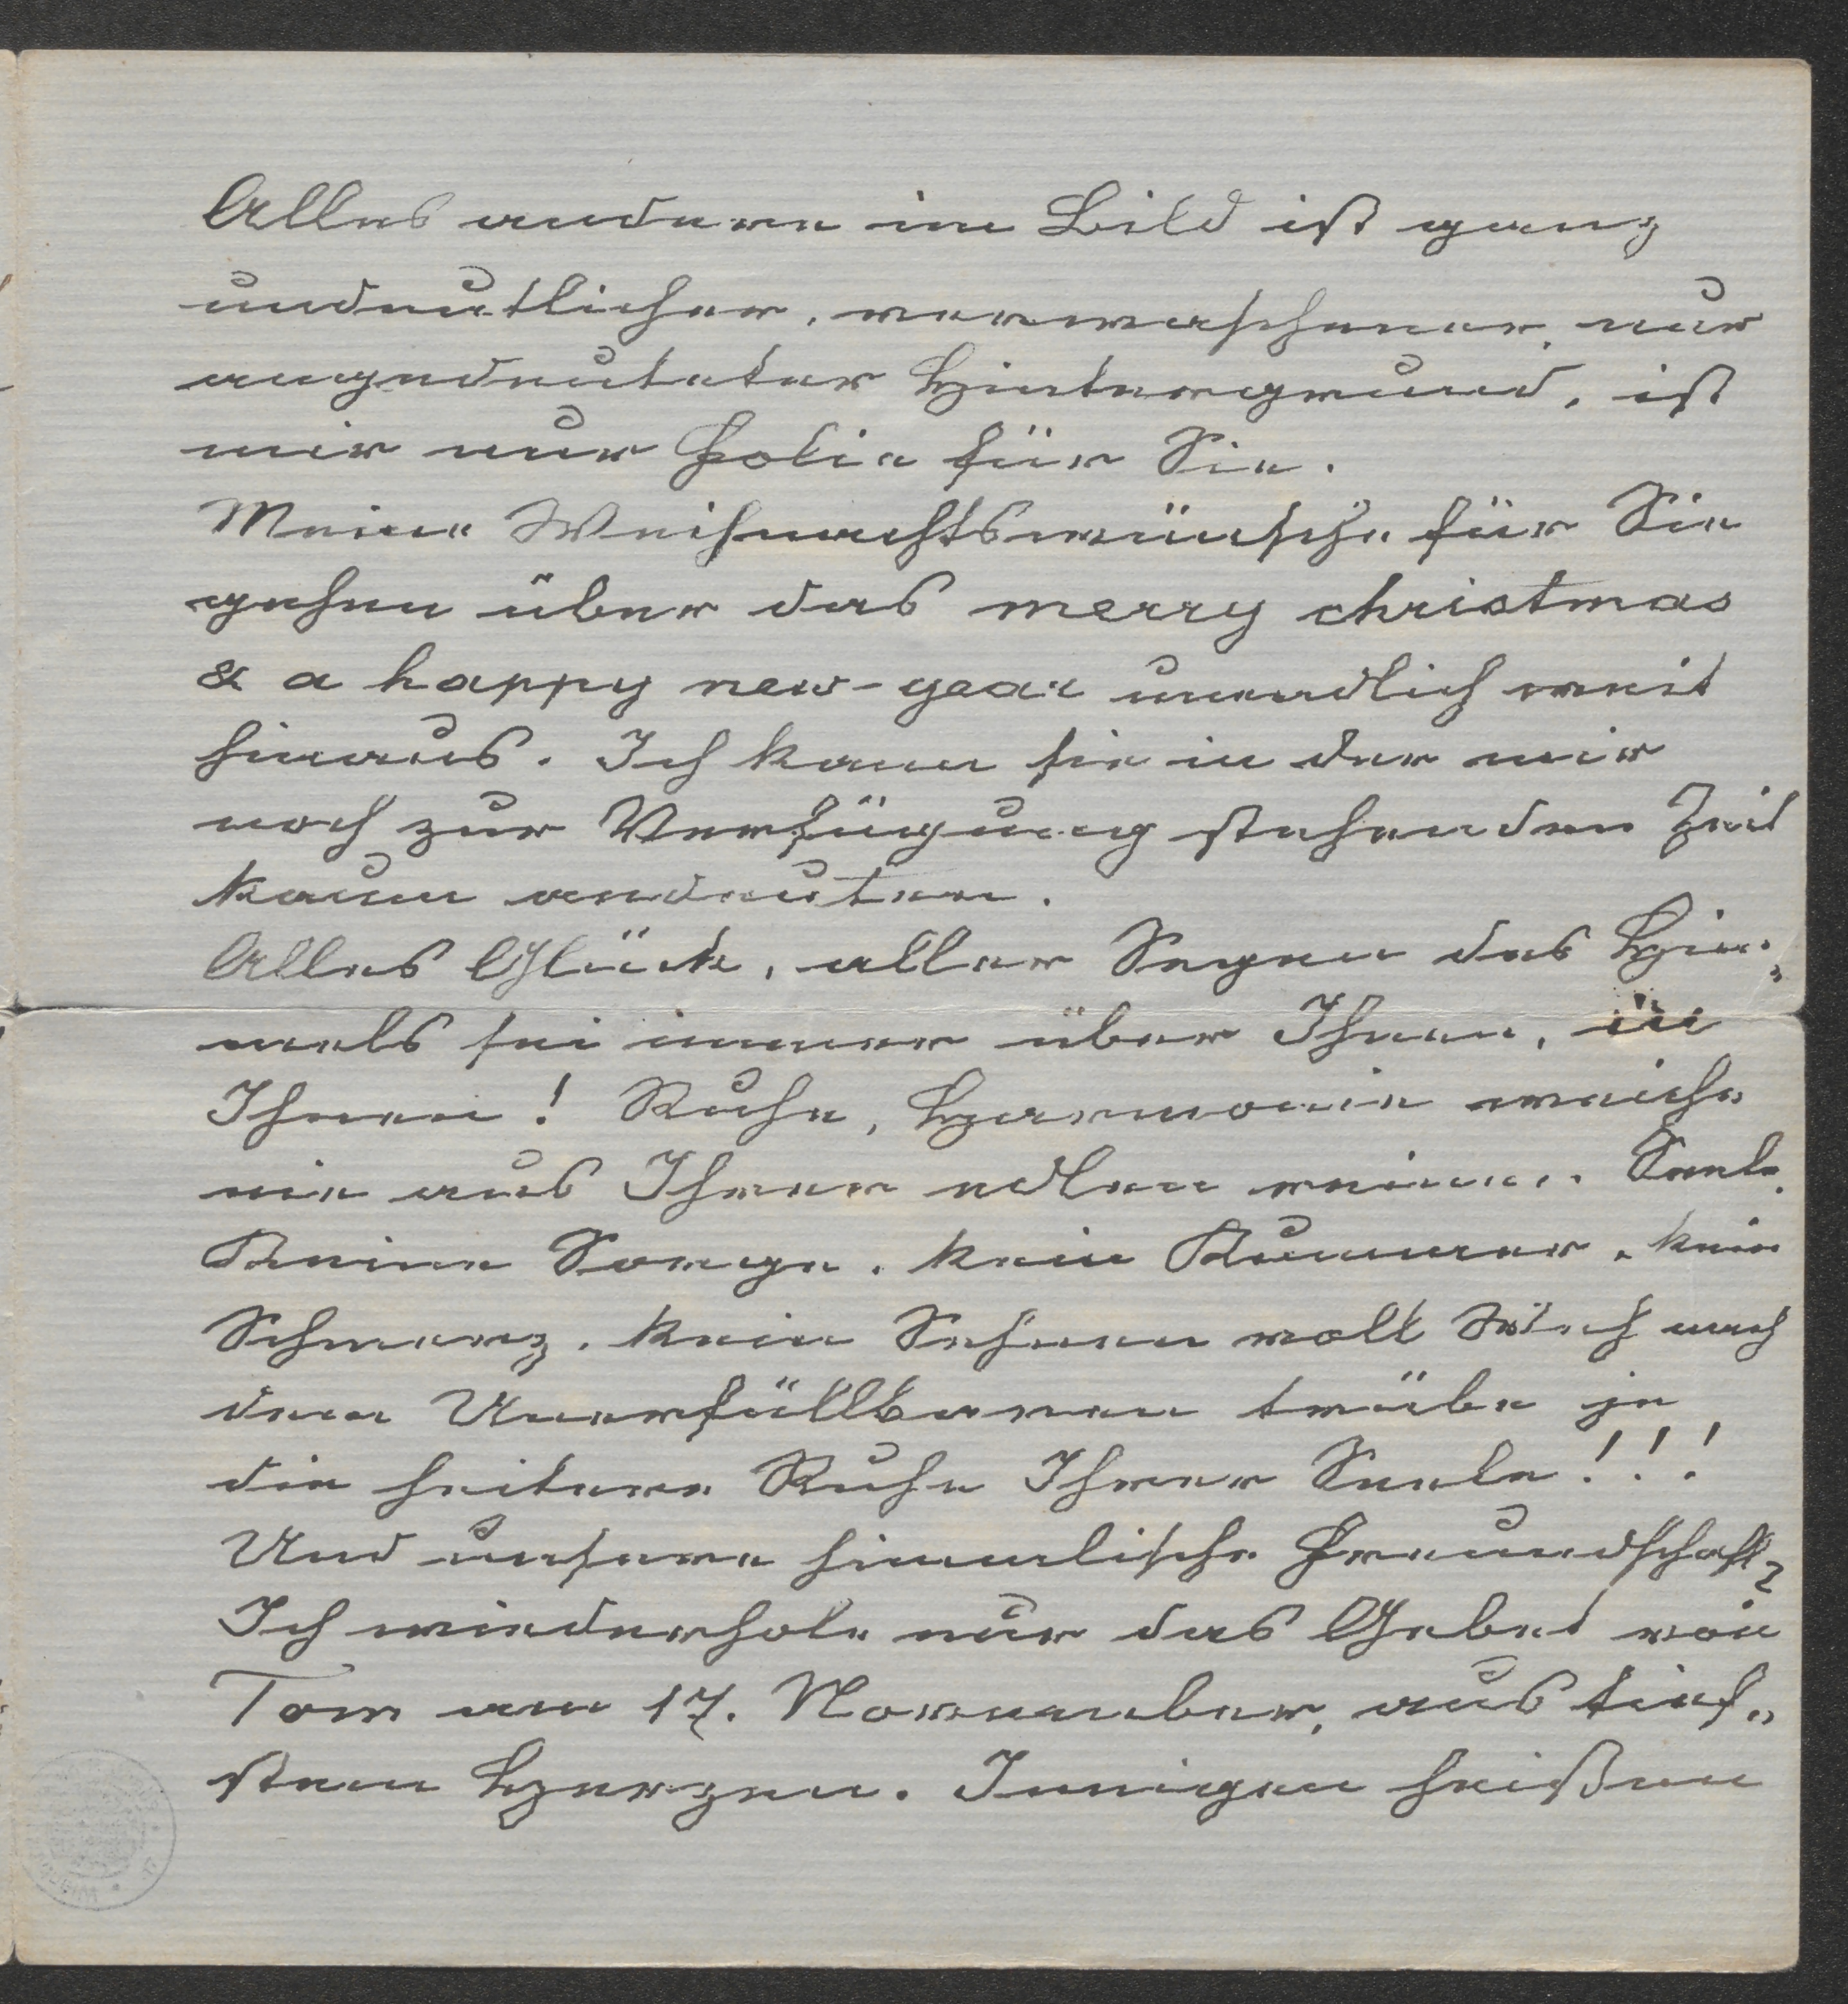 Alles andere im Bild ist ganz
undeutlicher, verwaschener, nur
angedeuteter Hintergrund, ist
mir nur Folie für Sie.
Meine Weihnachtswünsche für Sie
gehen über das merry christmas
& a happy new-year unendlich weit
hinaus. Ich kann sie in der mir
noch zur Verfügung stehenden Zeit
kaum andeuten.
Alles Glück, aller Segen des Him-
mels sei immer über Ihnen, in
Ihnen! Ruhe, Harmonie weiche
nie aus Ihrer edlen reinen Seele.
Keine Sorge, kein Kummer, kein
Schmerz, kein Sehnen nach
dem Unerfüllbaren trübe je
die heitere Ruhe Ihrer Seele!!!
Und unsere himmlische Freundschaft?
Ich wiederhole nur das Gebet von
Tom am 17. November, aus tief-
stem Herzen. Innigen heißen